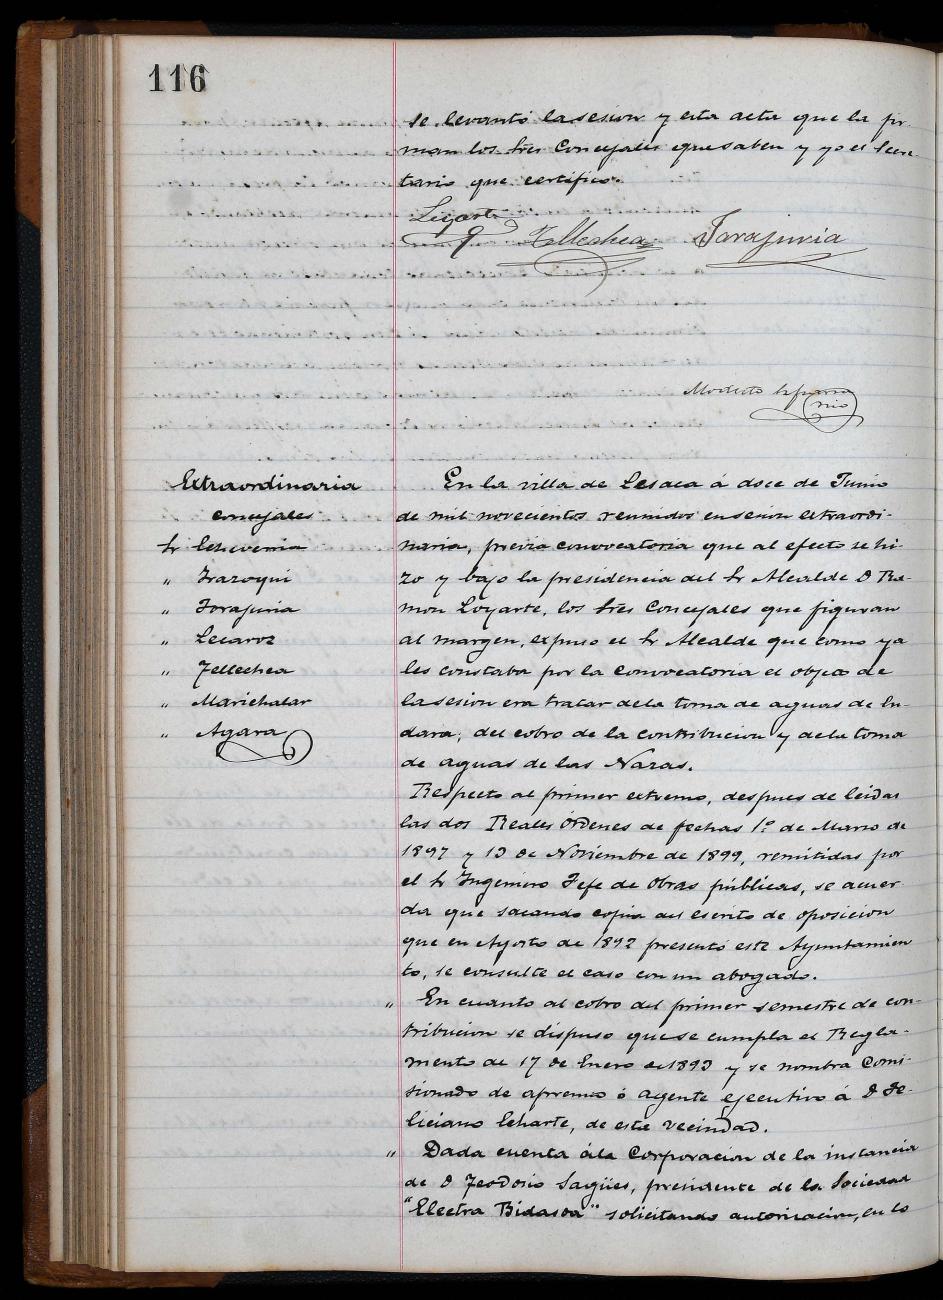 116
se levantó la sesion y esta acta que la fir-
man los tres Concejales que saben y yo el Secre-
tario que certifico.
Loyarte
Tellechea Torajuria
Modesto
Extraordinaria
concejales
Sr Echeverria
„ Irazoqui
„ Torajuria
„ Lecaroz
„ Tellechea
„ Marichalar
„ Agara
En la villa de Lesaca á doce de Junio
de mil novecientos reunidos en sesion extraordi-
naria, previa convocatoria que al efecto se hi-
zo y bajo la presidencia del Sr Alcalde D Ra-
mon Loyarte, los tres Concejales que figuran
al margen, expuso el Sr Alcalde que como ya
les constaba por la convocatoria el objeto de
la sesion era tratar de la toma de aguas de En-
dara, del cobro de la contribucion y de la toma
de aguas de las Nazas.
Respecto al primer extremo, despues de leidas
las dos Reales Ordenes de fechas 1º de Marzo de
1897 y 13 de Noviembre de 1899, remitidas por
el Sr Ingeniero Jefe de Obras públicas, se acuer-
da que sacando copia del escrito de oposicion
que en Agosto de 1892 presentó este Ayuntamien
to, se consulte el caso con un abogado.
„ En cuanto al cobro del primer semestre de con-
tribucion se dispuso que se cumpla el Regla-
mento de 17 de Enero de 1893 y se nombra Comi-
sionado de apremio ó agente ejecutivo á D Fe-
liciano Icharte, de esta vecindad.
„ Dada cuenta á la Corporacion de la instancia
de D Teodosio Sagües, presidente de la Sociedad
"Electra Bidasoa" solicitando autorizacion, en lo